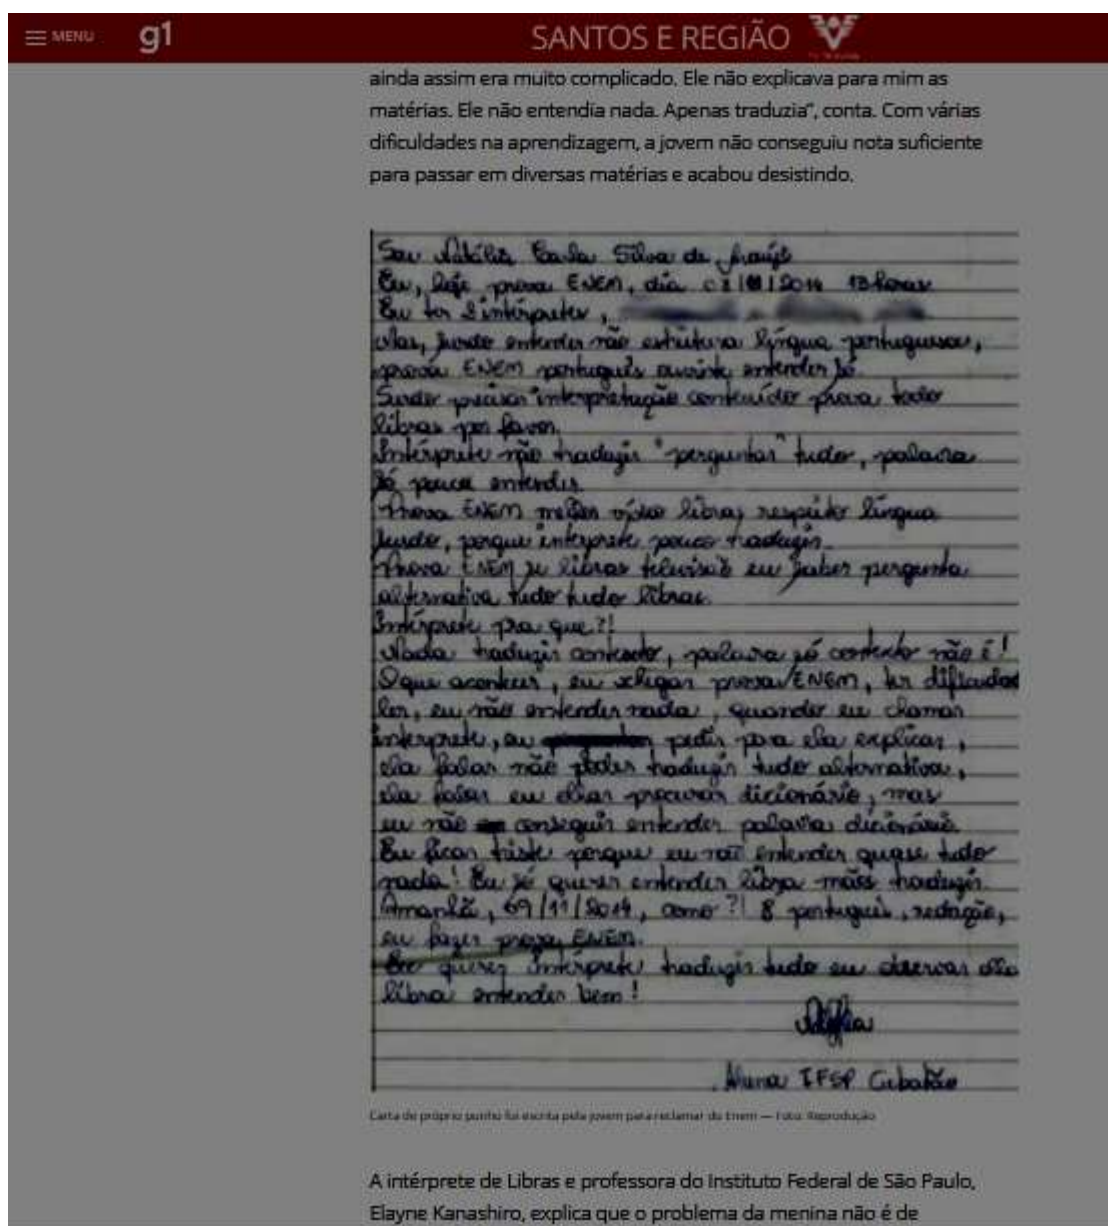 MENU g1 SANTOS E REGIÃO
ainda assim era muito complicado. Ele não explicava para mim as
matérias. Ele não entendia nada. Apenas traduzia", conta. Com várias
dificuldades na aprendizagem, a jovem não conseguiu nota suficiente
para passar em diversas matérias e acabou desistindo.
Sou Natália Carla Silva de Araújo
Eu, hoje prova ENEM, dia 08/11/2014 13 horas
Eu ter 2 intérpretes,
Mas, surdo entender não estrutura língua portuguesa,
prova ENEM português ouvinte entender só.
Surdo precisa interpretação conteúdo prova todo
libras por favor.
Intérprete não traduzir "perguntas" tudo, palavra
só pouca entender.
Prova ENEM melhor vídeo libras respeito língua
surdo, porque intérprete pouco traduzir.
Prova ENEM se libras televisão eu saber pergunta
alternativa tudo tudo libras.
Intérprete pra que?!
Nada traduzir contexto, palavra só contexto não é!
O que acontecer, eu chegar prova ENEM, ter dificuldade
ler, eu não entender nada, quando eu chamar
intérprete, eu pedir para ela explicar,
ela falar não poder traduzir tudo alternativa,
ela falar eu olhar procurar dicionário, mas
eu não conseguir entender palavra dicionário.
Eu ficar triste porque eu não entender quase tudo
nada! Eu só querer entender libra mãos traduzir.
Amanhã, 09/11/2014, como?! 8 português, redação,
eu fazer prova ENEM.
Eu querer intérprete traduzir tudo eu observar ela
libra entender bem!
Aluna IFSP Cubatão
Carta de próprio punho foi escrita pela jovem para reclamar do Enem — Foto: Reprodução
A intérprete de Libras e professora do Instituto Federal de São Paulo,
Elayne Kanashiro, explica que o problema da menina não é de